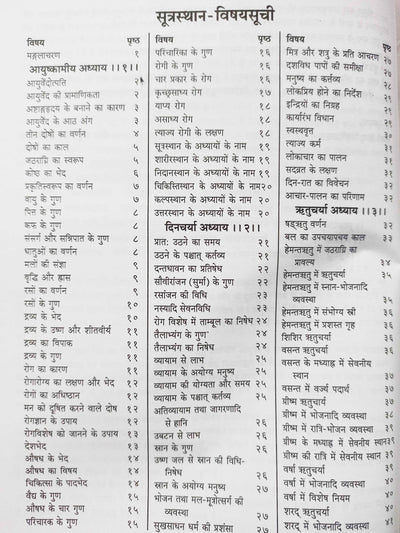 सूत्रस्थान-विषयसूची
विषय पृष्ठ
मङ्गलाचरण १
आयुष्कामीय अध्याय ।।१।।
आयुर्वेदोत्पत्ति २
आयुर्वेद की प्रामाणिकता २
अष्टाङ्गहृदय के बनाने का कारण ३
आयुर्वेद के आठ अंग ३
तीन दोषों का वर्णन ४
दोषों का काल ५
जठराग्नि का स्वरूप ५
कोष्ठ का भेद ६
प्रकृतिस्वरूप का वर्णन ७
वायु के गुण ७
पित्त के गुण ८
कफ के गुण ८
संसर्ग और सन्निपात के गुण ८
धातुओं का वर्णन ८
मलों की संज्ञा ९
वृद्धि और ह्रास ९
रसों का वर्णन ९
रसों के गुण १०
द्रव्य के भेद १०
द्रव्य के उष्ण और शीतवीर्य ११
द्रव्य का विपाक ११
द्रव्य के गुण ११
रोग का कारण १२
रोगारोग्य का लक्षण और भेद १२
रोगों का अधिष्ठान १२
मन को दूषित करने वाले दोष १२
रोगज्ञान के उपाय १२
रोगविशेष को जानने के उपाय १३
देशभेद १३
औषध के भेद १४
औषध का विषय १४
चिकित्सा के पादभेद १४
वैद्य के गुण १५
औषध के चार गुण १५
परिचारक के गुण १५
परिचारिका के गुण १६
रोगी के गुण १६
चार प्रकार के रोग १६
कृच्छ्रसाध्य रोग १७
याप्य रोग १८
असाध्य रोग १८
त्याज्य रोगी के लक्षण १८
सूत्रस्थान के अध्यायों के नाम १९
शारीरस्थान के अध्यायों के नाम १९
निदानस्थान के अध्यायों के नाम १९
चिकित्सितस्थान के अध्यायों के नाम २०
कल्पस्थान के अध्यायों के नाम २०
उत्तरस्थान के अध्यायों के नाम २०
दिनचर्या अध्याय ।।२।।
प्रातः उठने का समय २१
उठने के पश्चात् कर्तव्य २१
दन्तधावन का प्रतिषेध २२
सौवीरांजन (सुर्मा) के गुण २२
रसांजन की विधि २३
नस्यादि सेवनविधि २३
रोग विशेष में ताम्बूल का निषेध २४
तैलाभ्यंग के गुण २४
तैलाभ्यंग का निषेध २४
व्यायाम से लाभ २५
व्यायाम के अयोग्य मनुष्य २५
व्यायाम की योग्यता और समय २५
व्यायाम के पश्चात् कर्तव्य २५
अतिव्यायाम तथा जागरणादि
से हानि २५
उबटन से लाभ २५
स्नान के गुण २६
उष्ण जल से स्नान की विधि-
निषेध २६
स्नान के अयोग्य मनुष्य २६
भोजन तथा मल-मूत्रोत्सर्ग की
व्यवस्था २७
सुखसाधन धर्म की प्रशंसा २७
मित्र और शत्रु के प्रति आचरण २७
दशविध पापों की समीक्षा
मनुष्य का कर्तव्य
लोकप्रिय होने का निर्देश
इन्द्रियों का निग्रह
कार्यारंभ विधान
स्वस्थवृत्त
त्याज्य कर्म
लोकाचार का पालन
सदव्रत के लक्षण
दिन-रात का विवेचन
आचार-पालन का परिणाम
ऋतुचर्या अध्याय ।।३।।
षड्ऋतु वर्णन
बल का उपचयापचय काल
हेमन्तऋतु में जठराग्नि का
प्राबल्य
हेमन्तऋतु में ऋतुचर्या
हेमन्तऋतु में स्नान-भोजनादि
व्यवस्था
हेमन्तऋतु में संभोग्य स्त्री
हेमन्तऋतु में प्रशस्त गृह
शिशिर ऋतुचर्या
वसन्त ऋतुचर्या
वसन्त के मध्याह्न में सेवनीय
स्थान
वसन्त में वर्ज्य पदार्थ
ग्रीष्म ऋतुचर्या
ग्रीष्म में भोजनादि व्यवस्था
ग्रीष्म में रात्रि-भोजन व्यवस्था
ग्रीष्म के मध्याह्न में सेवनीय स्थान
ग्रीष्म की रात्रि में सेवनीय स्थान
वर्षा ऋतुचर्या
वर्षा में भोजनादि व्यवस्था
वर्षा में विशेष नियम
शरद् ऋतुचर्या
शरद् में भोजनादि व्यवस्था